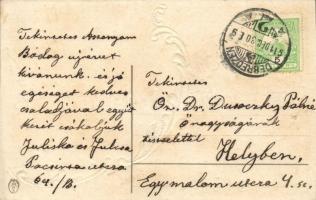 Tekintetes Asszonyom
Boldog ujévet
kivánunk. és jó
egésséget kedves
családjával együtt
kezét csókoljuk
Juliska és Julcsa
Pacsirta utcza
64./B.
DEBRECZEN
Tekintetes
Ön. Dr. Pálné
önagyságának
tisztelettel
Helyben,
Egymalom utcza 4. sz.